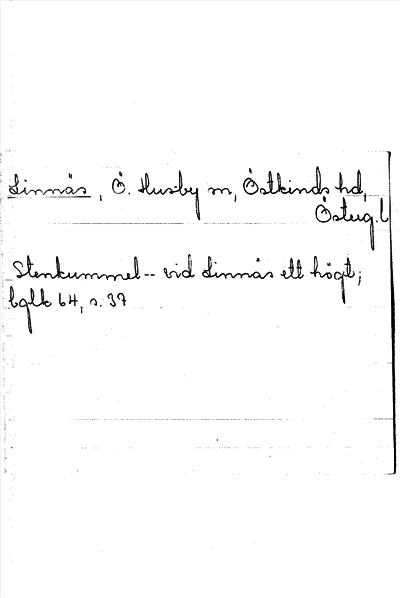 Linnäs, Ö. Husby sn, Östkinds hd,
Österg. l
Stenkummel -- vid Linnäs ett högt;
bglk 64, s. 37